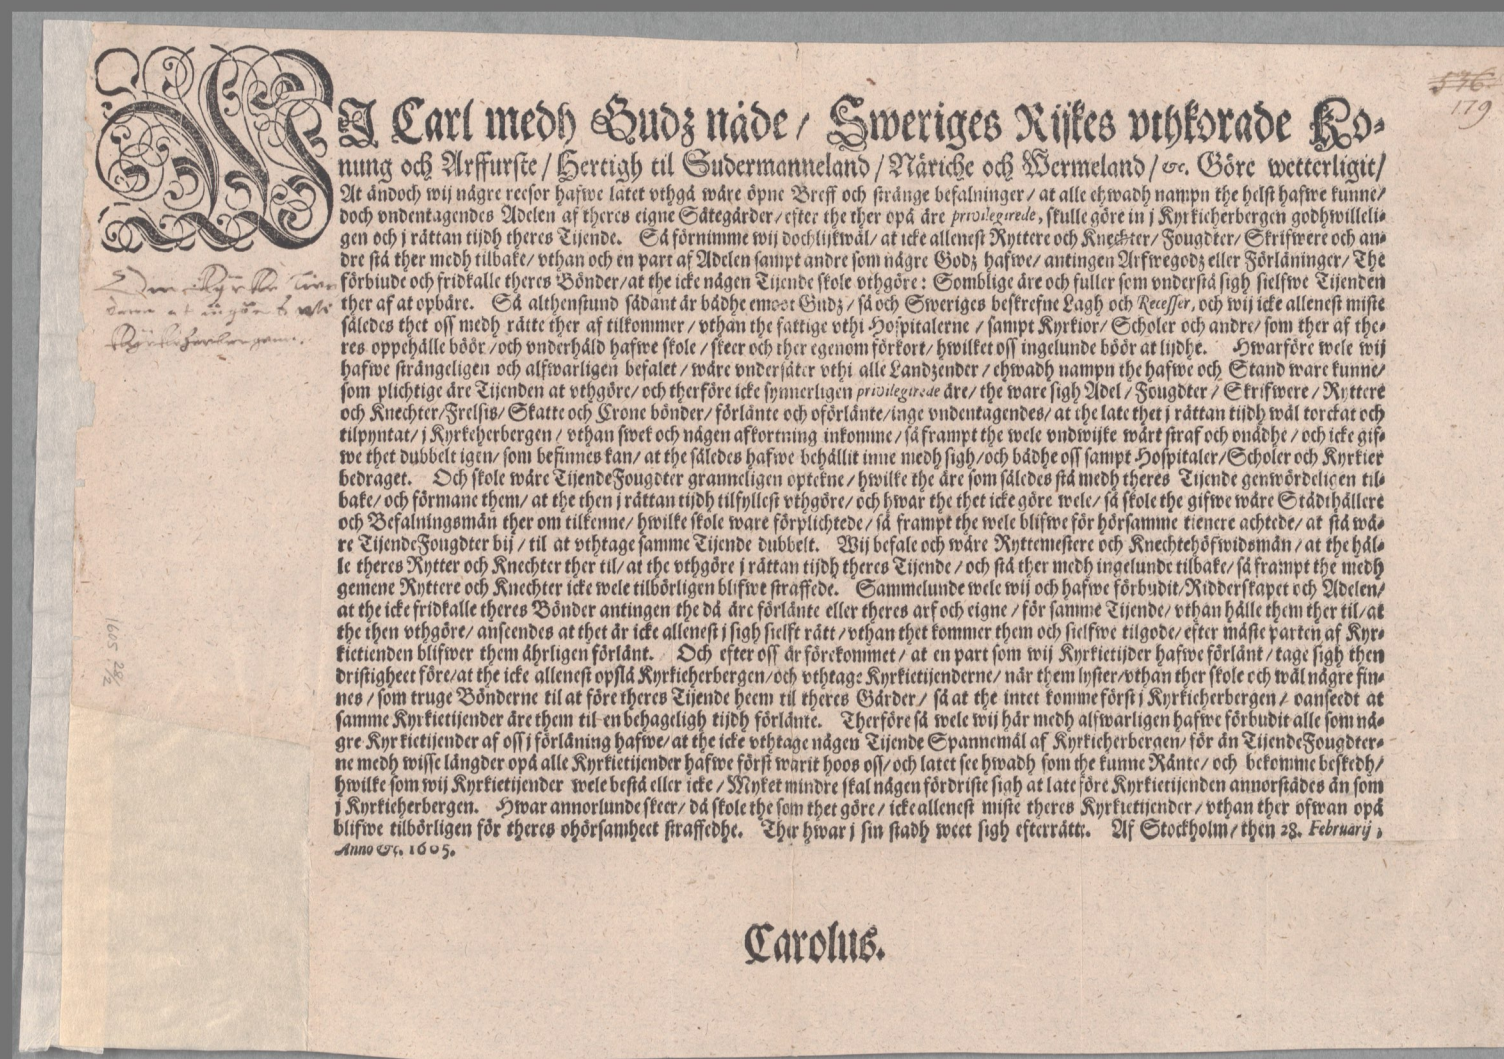 WJ Carl medh Gudz nåde / Sweriges Rijkes vthkorade Ko-
nung och Arffurste / Hertigh til Sudermanneland / Näriche och Wermeland / &c. Göre wetterligit /
At ändoch wij någre reesor hafwe låtet vthgå wåre öpne Breff och stränge befalninger / at alle ehwadh nampn the helst hafwe kunne /
doch vndentagendes Adelen af theres eigne Sätegårder / efter the ther opå äre privilegierede, skulle göre in j Kyrkieherbergen godhwilleli-
gen och j rättan tijdh theres Tijende. Så förnimme wij doch lijkwäl / at icke allenest Ryttere och Knechter / Fougdter / Skrifwere och an-
dre stå ther medh tilbake / vthan och en part af Adelen sampt andre som någre Godz hafwe / antingen Arfwegodz eller Förläninger / The
förbiude och fridkalle theres Bönder / at the icke någen Tijende skole vthgöre : Somblige äre och fuller som vnderstå sigh sielfwe Tijenden
ther af at opbäre. Så althenstund sådant är bådhe emoot Gudz / så och Sweriges beskrefne Lagh och Recesser, och wij icke allenest miste
således thet oss medh rätte ther af tilkommer / vthan the fattige vthi Hospitalerne / sampt Kyrkior / Scholer och andre / som ther af the-
res oppehälle böör / och vnderhåld hafwe skole / skeer och ther egenom förkort / hwilket oss ingelunde böör at lijdhe. Hwarföre wele wij
hafwe strängeligen och alfwarligen befalet / wåre vndersåter vthi alle Landzender / ehwadh nampn the hafwe och Stånd ware kunne /
som plichtige äre Tijenden at vthgöre / och therföre icke synnerligen privilegierede äre / the ware sigh Adel / Fougdter / Skrifwere / Ryttere
och Knechter / Frelsis / Skatte och Crone bönder / förlänte och oförlänte / inge vndentagendes / at the late thet j rättan tijdh wäl torckat och
tilpyntat / j Kyrkeherbergen / vthan swek och någen afkortning inkomme / så frampt the wele vndwijke wårt straf och onådhe / och icke gif-
we thet dubbelt igen / som befinnes kan / at the således hafwe behållit inne medh sigh / och bådhe oss sampt Hospitaler / Scholer och Kyrkier
bedraget. Och skole wåre TijendeFougdter granneligen optekne / hwilke the äre som således stå medh theres Tijende genwördeligen til-
bake / och förmane them / at the then j rättan tijdh tilfyllest vthgöre / och hwar the thet icke göre wele / så skole the gifwe wåre Städthållere
och Befalningsmän ther om tilkenne / hwilke skole ware förplichtede / så frampt the wele blifwe för hörsamme tienere achtede / at stå wå-
re TijendeFougdter bij / til at vthtage samme Tijende dubbelt. Wij befale och wåre Ryttemestere och Knechtehöfwidsmän / at the hål-
le theres Rytter och Knechter ther til / at the vthgöre j rättan tijdh theres Tijende / och stå ther medh ingelunde tilbake / så frampt the medh
gemene Ryttere och Knechter icke wele tilbörligen blifwe straffede. Sammelunde wele wij och hafwe förbudit / Ridderskapet och Adelen /
at the icke fridkalle theres Bönder antingen the då äre förlänte eller theres arf och eigne / för samme Tijende / vthan hålle them ther til / at
the then vthgöre / anseendes at thet är icke allenest j sigh sielft rätt / vthan thet kommer them och sielfwe tilgode / efter mäste parten af Kyr-
kietienden blifwer them åhrligen förlänt. Och efter oss är förekommet / at en part som wij Kyrkietijder hafwe förlänt / tage sigh then
dristigheet före / at the icke allenest opslå Kyrkieherbergen / och vthtage Kyrkietijenderne / när them lyster / vthan ther skole och wäl någre fin-
nes / som truge Bönderne til at före theres Tijende heem til theres Gårder / så at the intet komme först j Kyrkieherbergen / oanseedt at
samme Kyrkietijender äre them til en behageligh tijdh förlänte. Therföre så wele wij här medh alfwarligen hafwe förbudit alle som nå-
gre Kyrkietijender af oss j förläning hafwe / at the icke vthtage någen Tijende Spannemål af Kyrkieherbergen / för än TijendeFougdter-
ne medh wisse längder opå alle Kyrkietijender hafwe först warit hoos oss / och latet see hwadh som the kunne Ränte / och bekomme beskedh /
hwilke som wij Kyrkietijender wele bestå eller icke / Myket mindre skal någen fördriste sigh at late före Kyrkietijenden annorstädes än som
j Kyrkieherbergen. Hwar annorlunde skeer / då skole the som thet göre / icke allenest miste theres Kyrkietijender / vthan ther ofwan opå
blifwe tilbörligen för theres ohörsamheet straffedhe. Ther hwar j sin stadh weet sigh efterrätte. Af Stockholm / then 28. Februarij,
Anno &c. 1605.
Carolus.
Om Kyrke
1605 28/2
576
179